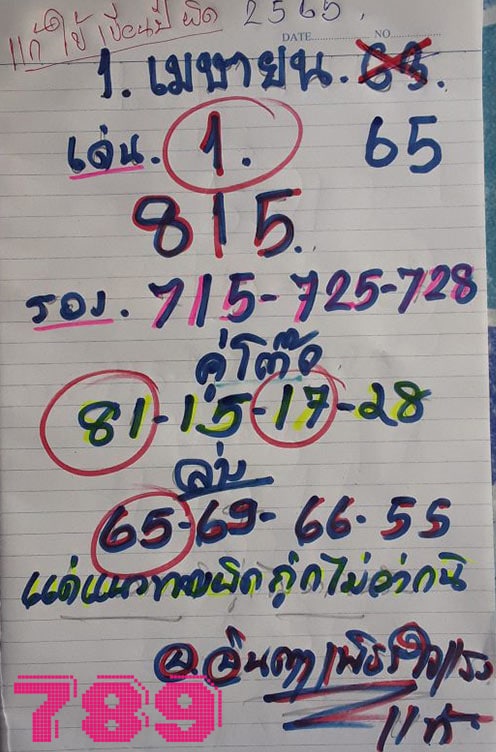 แก้ไข้ เขียนปี ผิด 2565.
DATE................NO................
1. เมษายน. 63.
เด่น. 1. 65
815.
รอง. 715-725-728
คู่โต๊ด
81-15-17-28
ล่าง
65-69-66.55
แค่แนวทางผิดถูกไม่ว่ากัน
789